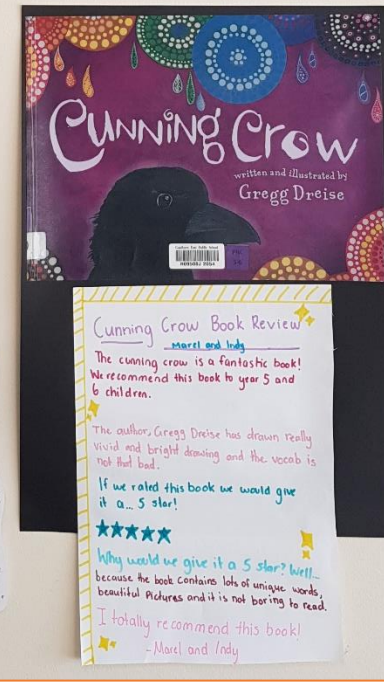 CUNNING CROW
written and illustrated by
Gregg Dreise
Cunning Crow Book Review
Marel and Indy
The cunning crow is a fantastic book!
We recommend this book to year 5 and
6 children.
The author, Gregg Dreise has drawn really
vivid and bright drawing and the vocab is
not that bad.
If we rated this book we would give
it a... 5 star!
Why would we give it a 5 star? Well...
because the book contains lots of unique words,
beautiful Pictures and it is not boring to read.
I totally recommend this book!
-Marel and Indy